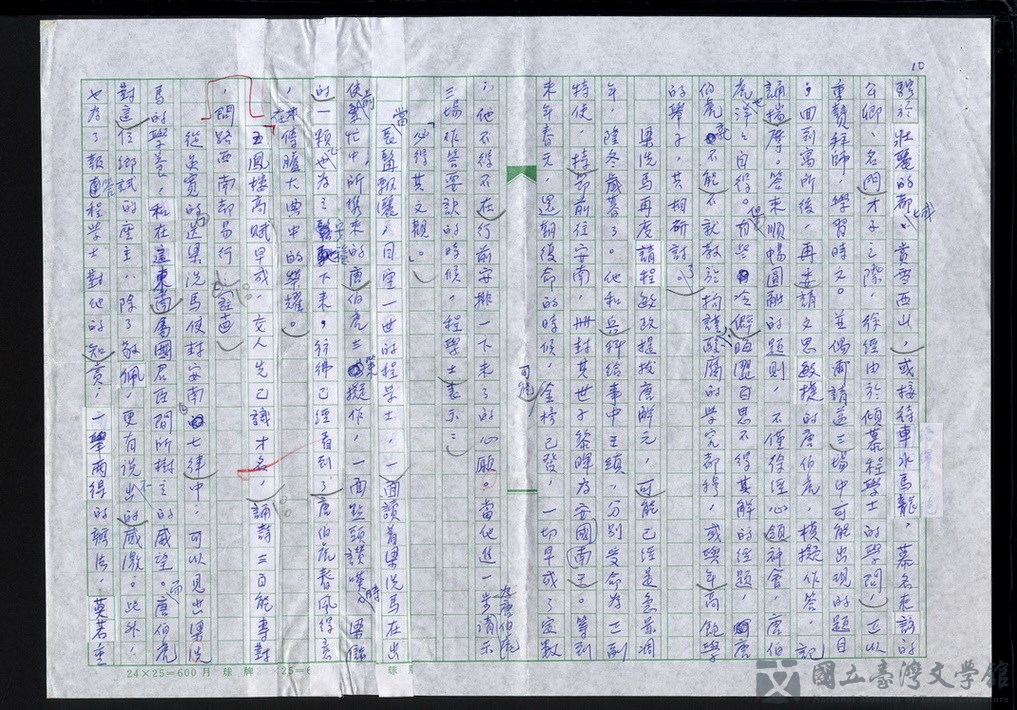 10
騁於壯麗的都城、賞雪西山，或接待車水馬龍，慕名來訪的
公卿、名門才子之際，徐經由於傾慕程學士的學問，正以
重贄拜師，學習時文。並偶爾請益三場中可能出現的題目
；回到寓所後，再央請文思敏捷的唐伯虎，模擬作答，記
誦揣摩。答來順暢圓融的題則，不僅徐經心領神會，唐伯
虎也洋洋自得。但有些冷僻晦澀百思不得其解的經題，唐
伯虎就不能不就教於拘謹酸腐的學究都穆，或與年高飽學
的舉子，共相研討了。
梁洗馬再度請程敏政提拔唐解元，可能已經是急景凋
年，隆冬歲暮了。他和兵科給事中王縝，分別受命為正副
特使，持節前往安南，冊封其世子黎暉為安南國王。等到
來年春天，還朝復命的時候，金榜已發，一切早成了定數
；他不得不在行前安排一下未了的心願。當他進一步請示
可能為唐伯虎
三場作答要訣的時候，程學士表示：
「必得其文觀。」
當長髯飄飄，目空一世的程學士，一面讀着梁洗馬在出
使前繁忙中，所携來的唐伯虎三篇擬作，一面點頭讚嘆時，梁儲
的一顆心也為之下來，彷彿已經看到了唐伯虎春風得意
，在傳臚大典中的榮耀。
「五鳳樓高賦早成，交人先已識才名，誦詩三百能專對
，問路西南却易行；」
從吳寬的「送梁洗馬使封安南」七律中，可以見出梁洗
馬的學養，和在這東南屬國君臣間所樹立的威望。而唐伯虎
對這位鄉試的座主，除了敬佩，更有說不出的感激。此外，
也為了報答程學士對他的知賞，一舉兩得的辦法，莫若重
24×25=600
球牌
國立臺灣文學館
National Museum of Taiwan Literature